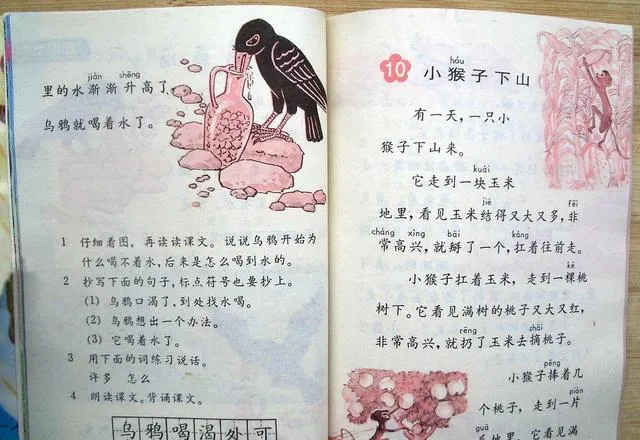 jiàn shēng
里的水渐渐升高了，
乌鸦就喝着水了。
1 仔细看图，再读读课文。说说乌鸦开始为
什么喝不着水，后来是怎么喝到水的。
2 抄写下面的句子，标点符号也要抄上。
(1) 乌鸦口渴了，到处找水喝。
(2) 乌鸦想出一个办法。
(3) 它喝着水了。
3 用下面的词练习说话。
许多 怎么
4 朗读课文。背诵课文。
乌鸦喝渴处可
hóu
10 小猴子下山
有一天，一只小
猴子下山来。
kuài
它走到一块玉米
jiē fēi
地里，看见玉米结得又大又多，非
cháng xìng bāi káng
常高兴，就掰了一个，扛着往前走。
kē
小猴子扛着玉米，走到一棵桃
树下。它看见满树的桃子又大又红，
rēng zhāi
非常高兴，就扔了玉米去摘桃子。
pěng
小猴子捧着几
piàn
个桃子，走到一片
guā
瓜地里，它看见满